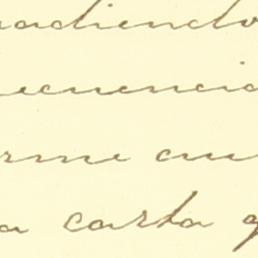 adiendo
ecuencia
rme cu
a carta q